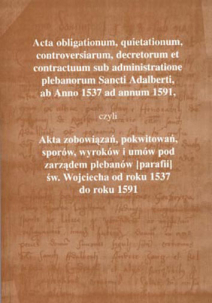 Acta obligationum, quietationum,
controversiarum, decretorum et
contractuum sub administratione
plebanorum Sancti Adalberti,
ab Anno 1537 ad annum 1591,
czyli
Akta zobowiązań, pokwitowań,
sporów, wyroków i umów pod
zarządem plebanów [parafii]
św. Wojciecha od roku 1537
do roku 1591